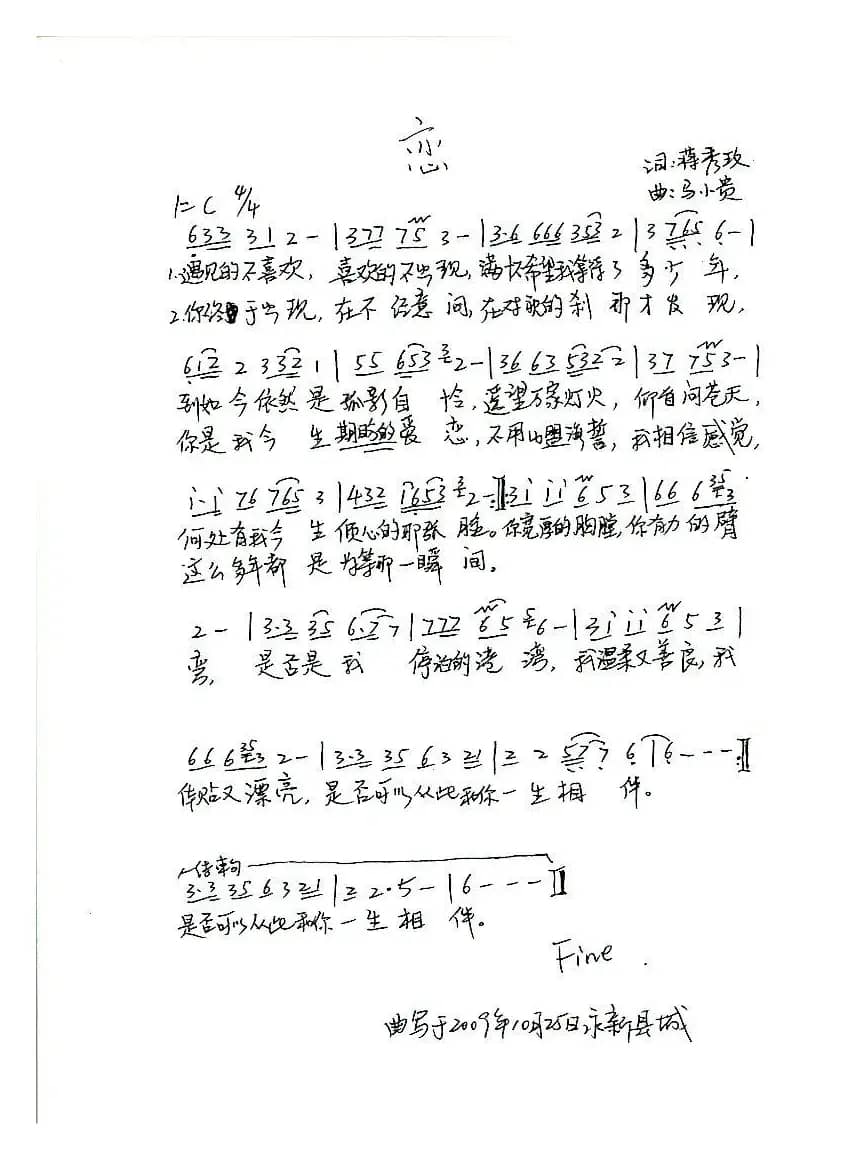 恋
词:蒋秀玫
1=C 4/4
曲:马小贵
633 31 2 - | 377 75 3 - | 3·6 666 353 2 | 3 765 6 - |
1.遇见的不喜欢,喜欢的不出现,满怀希望我等待了多少年,
2.你终于出现,在不经意间,在对歌的刹那才发现,
612 2 3 332 1 | 55 653 2 - | 36 63 532 2 | 37 753 - |
到如今依然是孤影自怜,遥望万家灯火,仰首问苍天,
你是我今生期盼的爱恋,不用山盟海誓,我相信感觉,
i·i 76 765 3 | 432 i653 2 - :‖ 3i ii 6 5 3 | 66 6 353
何处有我今生倾心的那张脸。你宽厚的胸膛,你有力的臂
这么多年都是为等那一瞬间。
2 - | 3·3 35 6·7 7 | 777 65 6 - | 3i ii 6 5 3 |
弯,是否是我停泊的港湾,我温柔又善良,我
66 6353 2 - | 3·3 35 6 3 21 | 2 2 577 6 | 6 - - - :‖
体贴又漂亮,是否可以从此和你一生相伴。
结束句
3·3 35 6 3 21 | 2 2·5 - | 6 - - - ‖
是否可以从此和你一生相伴。
Fine.
曲写于2009年10月25日永新县城